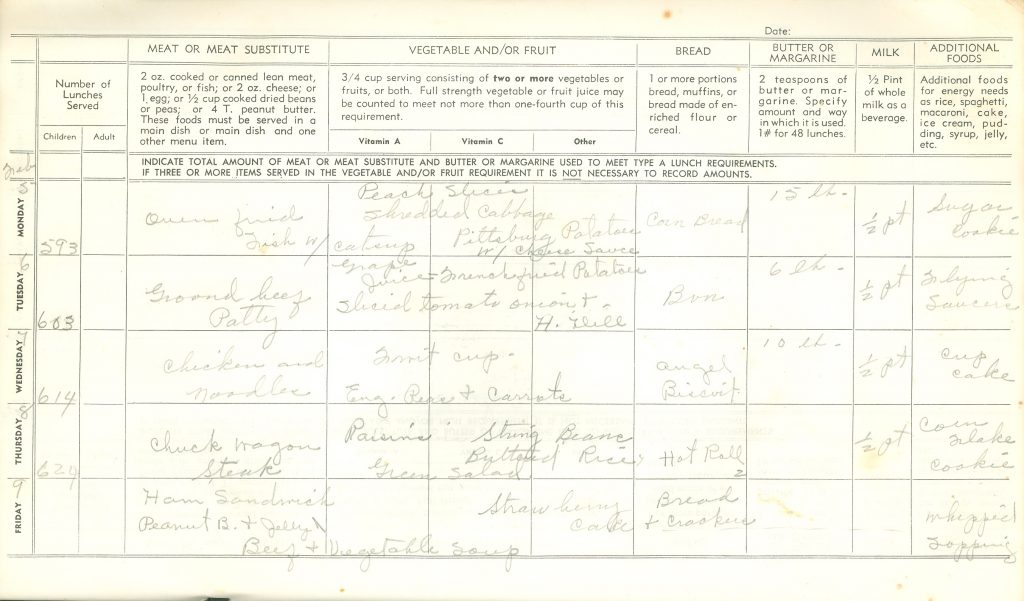 Date:
MEAT OR MEAT SUBSTITUTE
VEGETABLE AND/OR FRUIT
BREAD
BUTTER OR
MARGARINE
MILK
ADDITIONAL
FOODS
Number of
Lunches
Served
Children
Adult
2 oz. cooked or canned lean meat,
poultry, or fish; or 2 oz. cheese; or
1 egg; or ½ cup cooked dried beans
or peas; or 4 T. peanut butter.
These foods must be served in a
main dish or main dish and one
other menu item.
3/4 cup serving consisting of two or more vegetables or
fruits, or both. Full strength vegetable or fruit juice may
be counted to meet not more than one-fourth cup of this
requirement.
Vitamin A
Vitamin C
Other
1 or more portions
bread, muffins, or
bread made of en-
riched flour or
cereal.
2 teaspoons of
butter or mar-
garine. Specify
amount and way
in which it is used.
1# for 48 lunches.
½ Pint
of whole
milk as a
beverage.
Additional foods
for energy needs
as rice, spaghetti,
macaroni, cake,
ice cream, pud-
ding, syrup, jelly,
etc.
INDICATE TOTAL AMOUNT OF MEAT OR MEAT SUBSTITUTE AND BUTTER OR MARGARINE USED TO MEET TYPE A LUNCH REQUIREMENTS.
IF THREE OR MORE ITEMS SERVED IN THE VEGETABLE AND/OR FRUIT REQUIREMENT IT IS NOT NECESSARY TO RECORD AMOUNTS.
MONDAY 5
593
Oven fried
Fish w/ catsup
Peach Slices
Shredded Cabbage
Pittsburg Potatoes
w/ Cheese Sauce
Corn Bread
15 lb.
½ pt
Sugar
Cookie
TUESDAY 6
603
Ground beef
Patty
Grape
Juice - French fried Potatoes
Sliced tomato onion + -
H. Dill
Bun
6 lb -
½ pt
Flying
Saucers
WEDNESDAY 7
614
Chicken and
Noodles
Fruit cup -
Eng. Peas + Carrots
Angel
Biscuit
10 lb -
½ pt
Cup
Cake
THURSDAY 8
624
Chuck Wagon
Steak
Raisins String Beans
Buttered Rice
Green Salad
Hot Rolls
½ pt
Corn
Flake
Cookie
FRIDAY 9
Ham Sandwich
Peanut B. + Jelly
Beef + Vegetable Soup
Strawberry
Cake
Bread
+ Crackers
Whipped
Topping